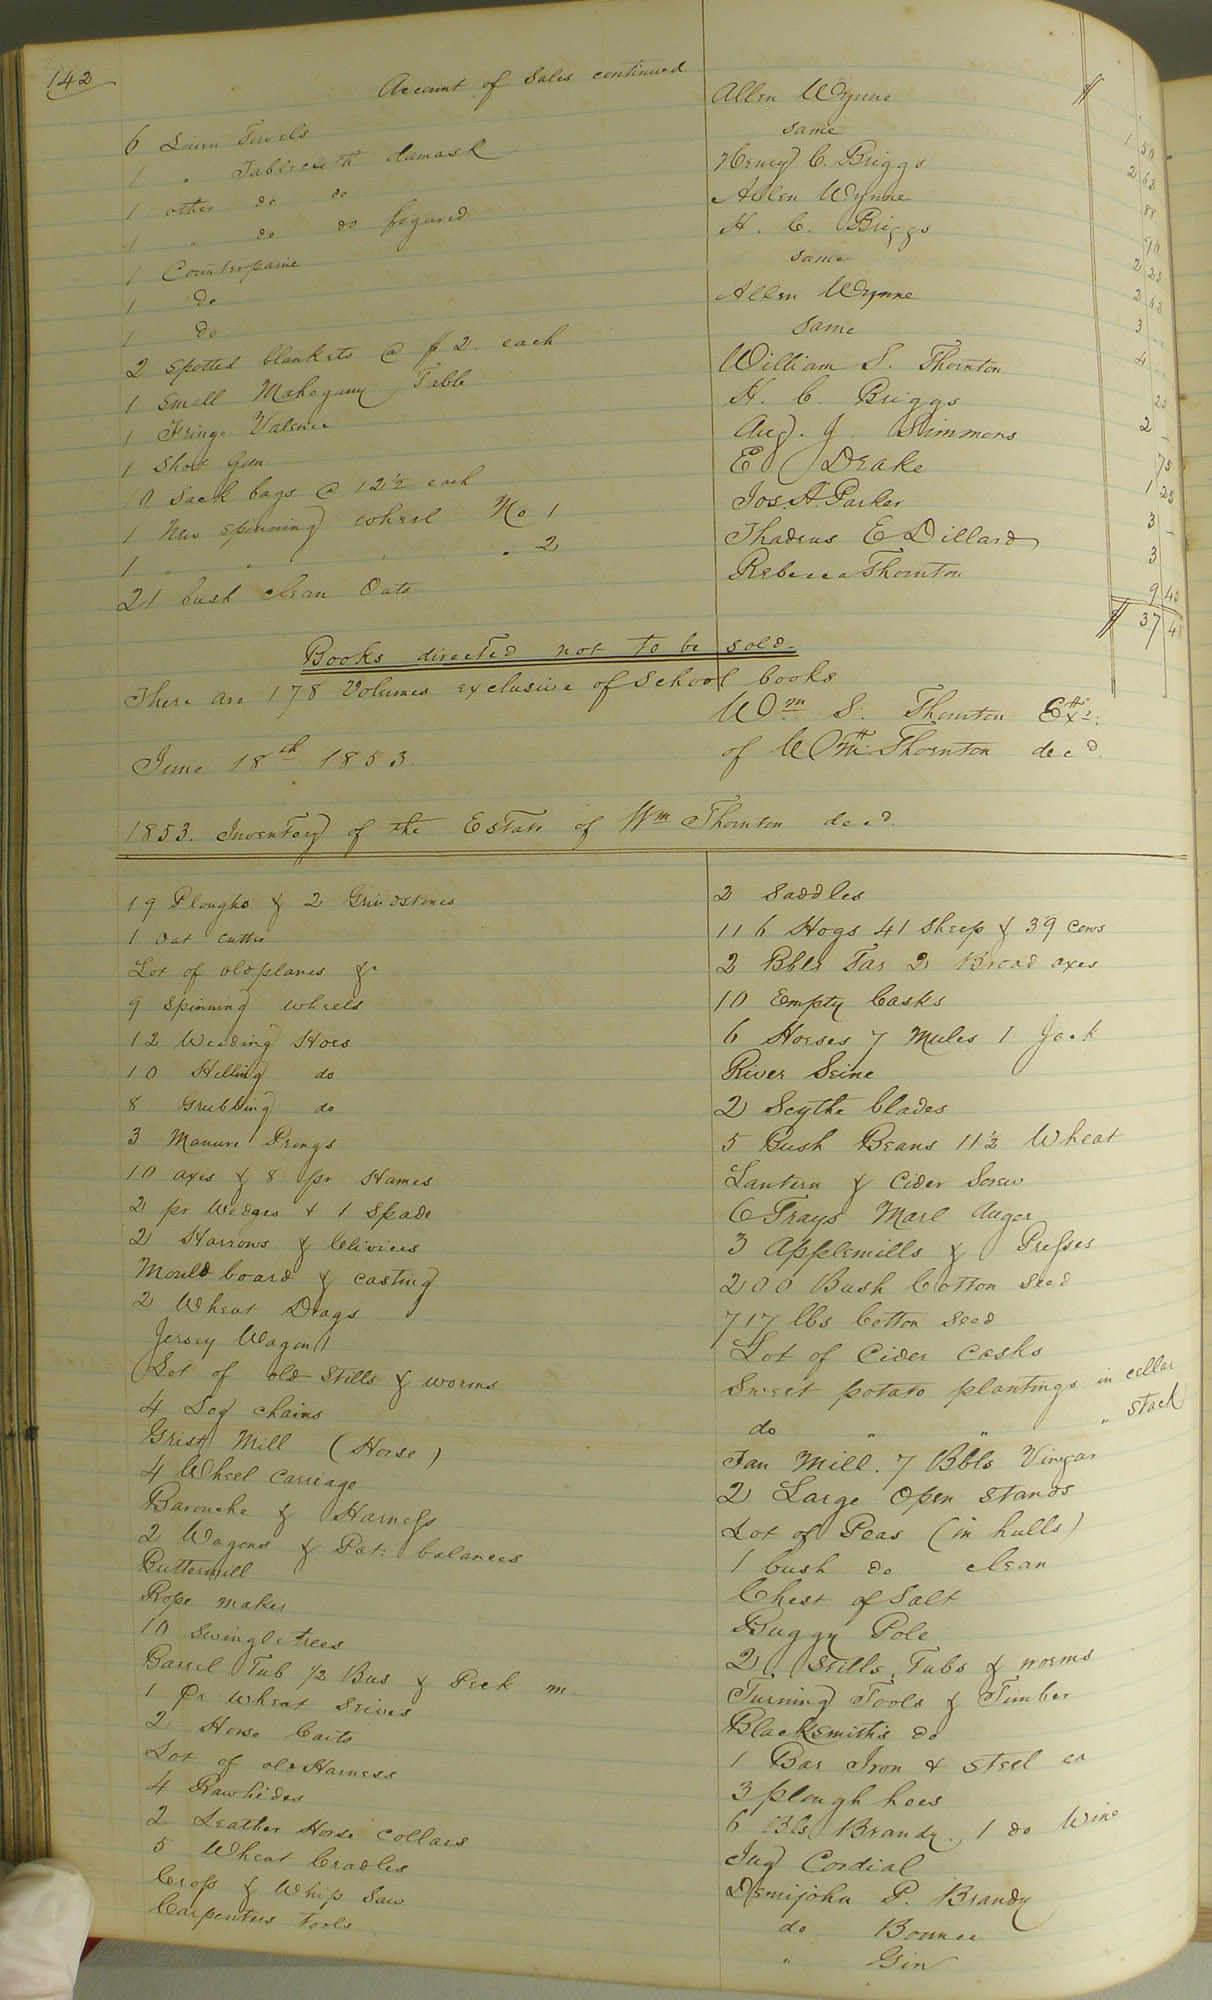 142
Account of Sales continued
6 Linen Towels Allen Wynne $ 1 50
1 " Tablecloth damask same 2 63
1 other do do Henry C. Briggs 88
1 " do do figured Allen Wynne 90
1 Counterpaine H. C. Briggs 2 25
1 do same 2 62
1 do Allen Wynne 3 --
2 Spotted blankets @ $2. each same 4 --
1 Small Mahogany Table William S. Thornton 25
1 Fringe Valence H. C. Briggs 2 -
1 Shot Gun Aug. J. Simmons 75
10 Sack bags @ 12½ each E Drake 1 25
1 New spinning wheel No 1 Jos. A. Parker 3 -
1 " " " " 2 Thadeus E Dillard 3
21 bush clean Oats Rebecca Thornton 9 45
$ 37 48
Books directed not to be sold.
There are 178 Volumes exclusive of School books
Wm S. Thornton Exr.
June 18th 1853. of Wm. Thornton decd.
1853. Inventory of the Estate of Wm Thornton decd.
19 Ploughs & 2 Grindstones
1 Oat cutter
Lot of old planes &c
9 Spinning wheels
12 Weeding Hoes
10 Hilling do
8 Grubbing do
3 Manure Prongs
10 axes & 8 pr Hames
2 pr Wedges + 1 Spade
2 Harrows & Clivices
Mould board & casting
2 Wheat Drags
Jersey Wagon
Lot of old Stills & worms
4 Log chains
Grist Mill (Horse)
4 Wheel Carriage
Barouche & Harness
2 Wagons & Pat: balances
Buttermill
Rope maker
10 Swingletrees
Barrel Tub ½ Bus & Peck m.
1 Pr Wheat Seives
2 Horse Carts
Lot of old Harness
4 Rawhides
2 Leather Horse Collars
5 Wheat Cradles
Cross & Whip Saw
Carpenters tools
2 Saddles
116 Hogs 41 Sheep & 39 Cows
2 Bbls Tar 2 Broad axes
10 Empty Casks
6 Horses 7 Mules 1 Jack
River Seine
2 Scythe blades
5 Bush Beans 11½ Wheat
Lantern & Cider Screw
6 Trays Marl Auger
3 Applemills & Presses
200 Bush Cotton Seed
717 lbs Cotton Seed
Lot of Cider Casks
Sweet potato plantings in cellar
do " " " stack
Fan Mill. 7 Bbls Vinegar
2 Large Open Stands
Lot of Peas (in hulls)
1 bush do clean
Chest of Salt
Buggy Pole
2 Stills, Tubs & worms
Turning Tools & Timber
Blacksmith's do
1 Bar Iron & Steel ea
3 plough hoes
6 Bls Brandy., 1 do Wine
Jug Cordial
Demijohn P. Brandy
do Bounce
" Gin